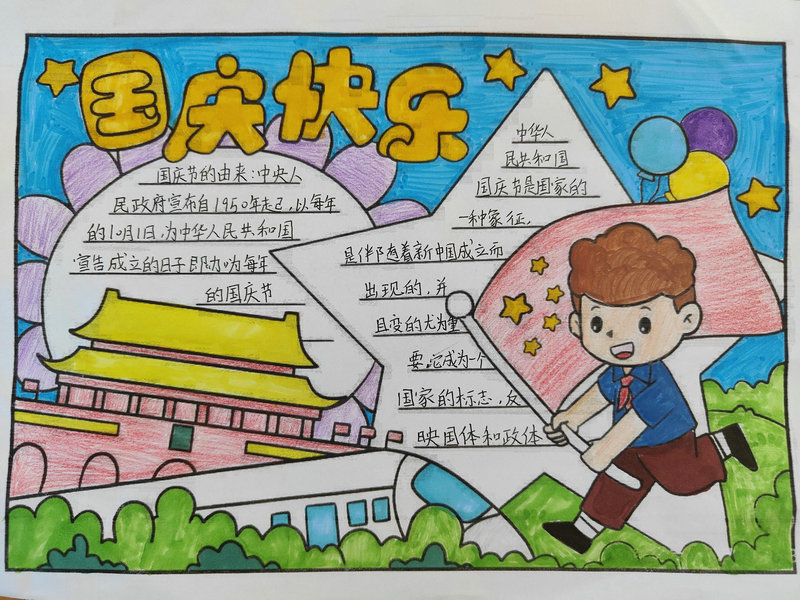 国庆快乐
国庆节的由来:中央人
民政府宣布自1950年起,以每年
的10月1日,为中华人民共和国
宣告成立的日子即为每年
的国庆节
中华人
民共和国
国庆节是国家的
一种象征,
是伴随着新中国成立而
出现的,并
且变的尤为重
要.它成为一个
国家的标志,反
映国体和政体